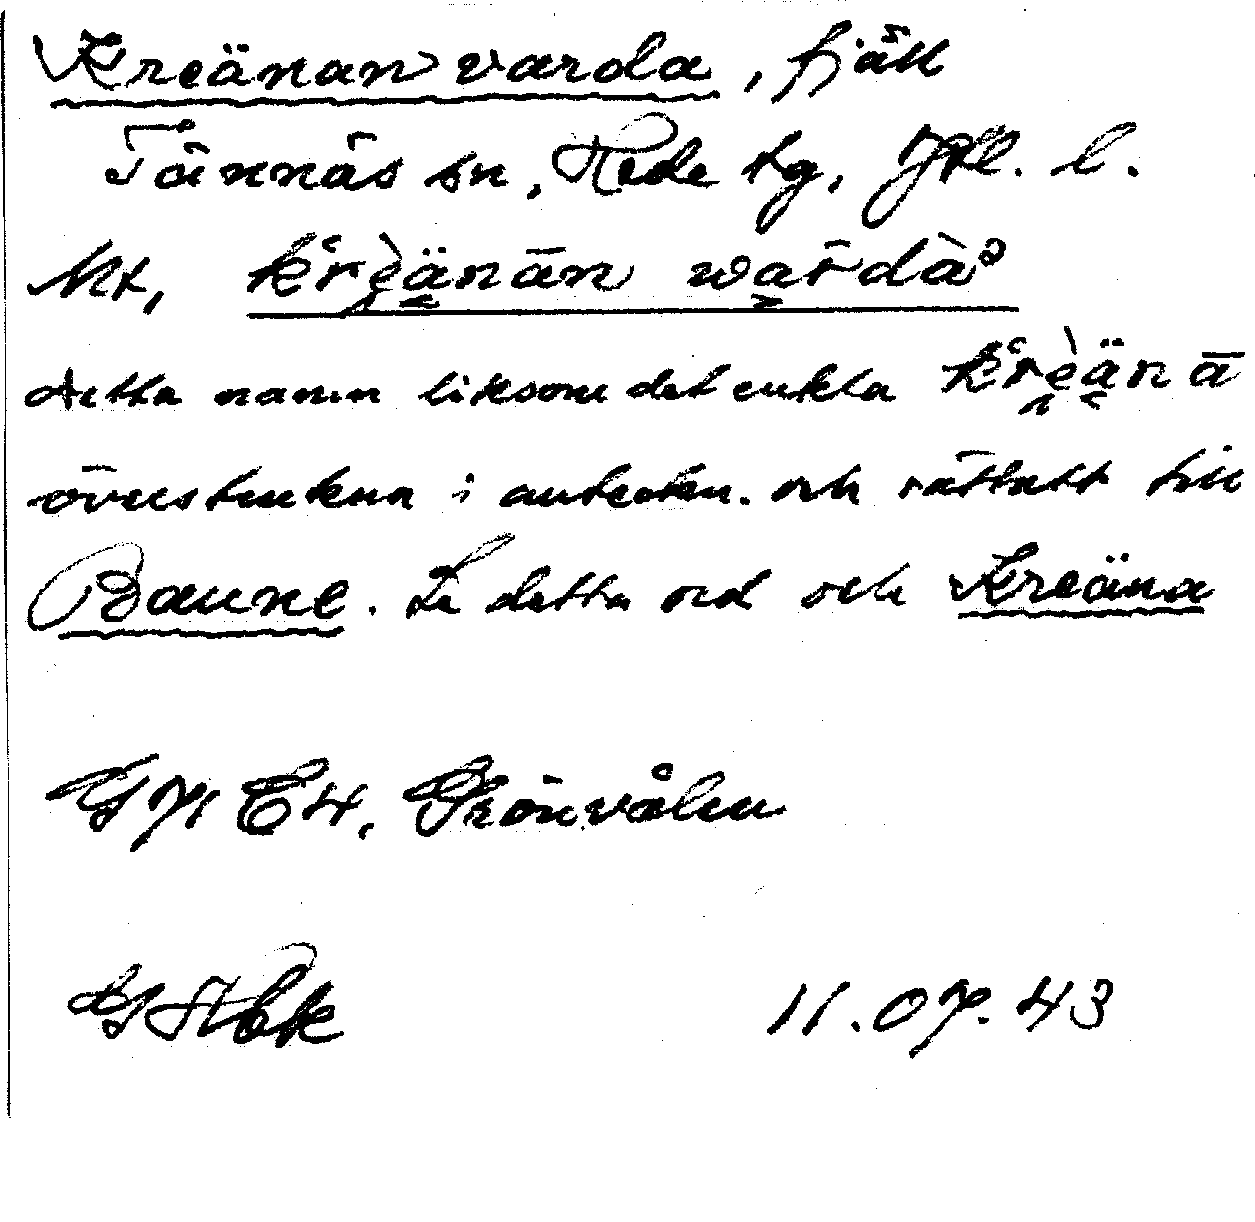 Kreänan varda, fjäll
Tännäs sn, Hede tg, Jtl. l.
Nt, kreänān wardà
detta namn liksom det enkla kreänā
överstrukna i anteckn. och rättatt till
Baune. Se detta ord och Kreäna
Grönvålen
11.07.43